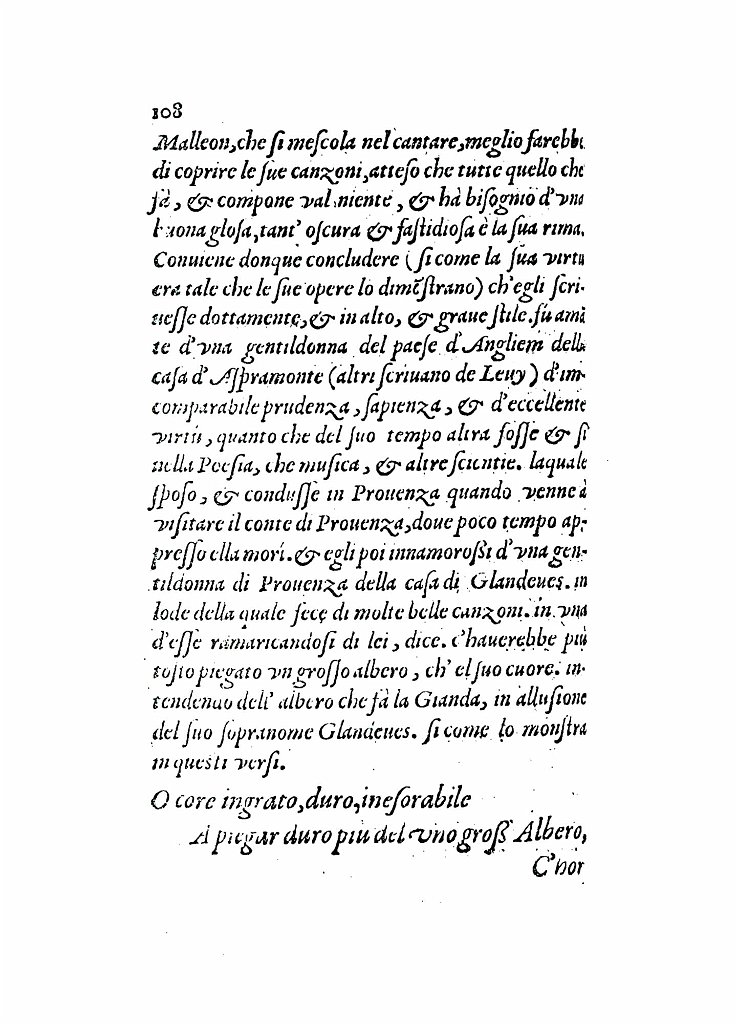 108
Malleon, che ſi meſcola nel cantare, meglio farebbe
di coprire le ſue canzoni, atteſo che tutte quello che
fà, & compone val niente, & hà biſognio d'vna
buona gloſa, tant' oſcura & faſtidioſa è la ſua rima.
Conuiene donque concludere (ſi come la ſua virtu
era tale che le ſue opere lo dimoſtrano) ch'egli ſcri-
ueſſe dottamente, & in alto, & graue ſtile. fù aman
te d'vna gentildonna del paeſe d'Angliem della
caſa d'Aſpramonte (altri ſcriuano de Leuy) d'im-
comparabile prudenza, ſapienza, & d'eccellente
virtù, quanto che del ſuo tempo altra foſſe & ſi
nella Poeſia, che muſica, & altre ſcientie. laquale
ſpoſo, & conduſſe in Prouenza quando venne à
viſitare il conte di Prouenza, doue poco tempo ap-
preſſo ella morì. & egli poi innamoroßi d'vna gen-
tildonna di Prouenza della caſa di Glandeues. in
lode della quale fece di molte belle canzoni. in vna
d'eſſe ramaricandoſi di lei, dice. c'hauerebbe più
toſto piegato vn groſſo albero, ch' el ſuo cuore. in-
tendendo dell' albero che fà la Gianda, in alluſione
del ſuo ſopranome Glandeues. ſi come lo monſtra
in queſti verſi.
O core ingrato, duro, ineſorabile
A piegar duro più del vno groß' Albero,
C'hor